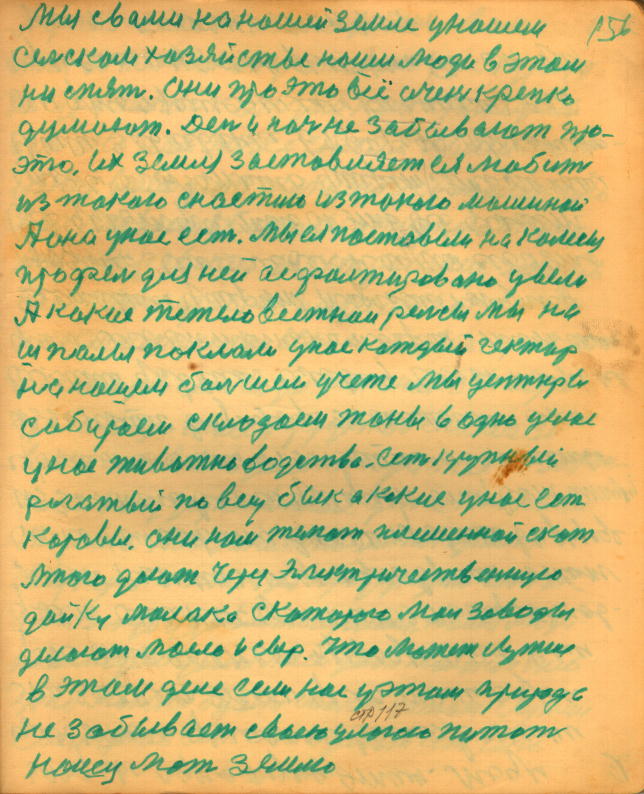 156
Мы с вами на нашей земле у нашем
селском хозяйстве наши люди в этом
ни спят. Они про это всё очен крепко
думают. Ден и ноч не забывают про
это. Их земля заставляет ея любит
из такого снастию из такого машиной
А она у нас ест. Мы ея поставели на колесы
профел для ней асфалтировано увели
А какие тежеловестнои релсы мы на
шпалы поклали у нас каждый гектар
на нашем болшем учете мы центнеры
сабираем складаем тоны в одно целае
у нас животноводства. Ест крупный
рогатый по вещу бык а какие у нас ест
каровы. Они нам телют племенной скот
Много дают через електричественную
дойку малака с которого маи заводы
делают масло и сыр. Что может лутше
в этам деле если нас у этам природа
не забывает свою улогою питат
стр 117
наису мат землю